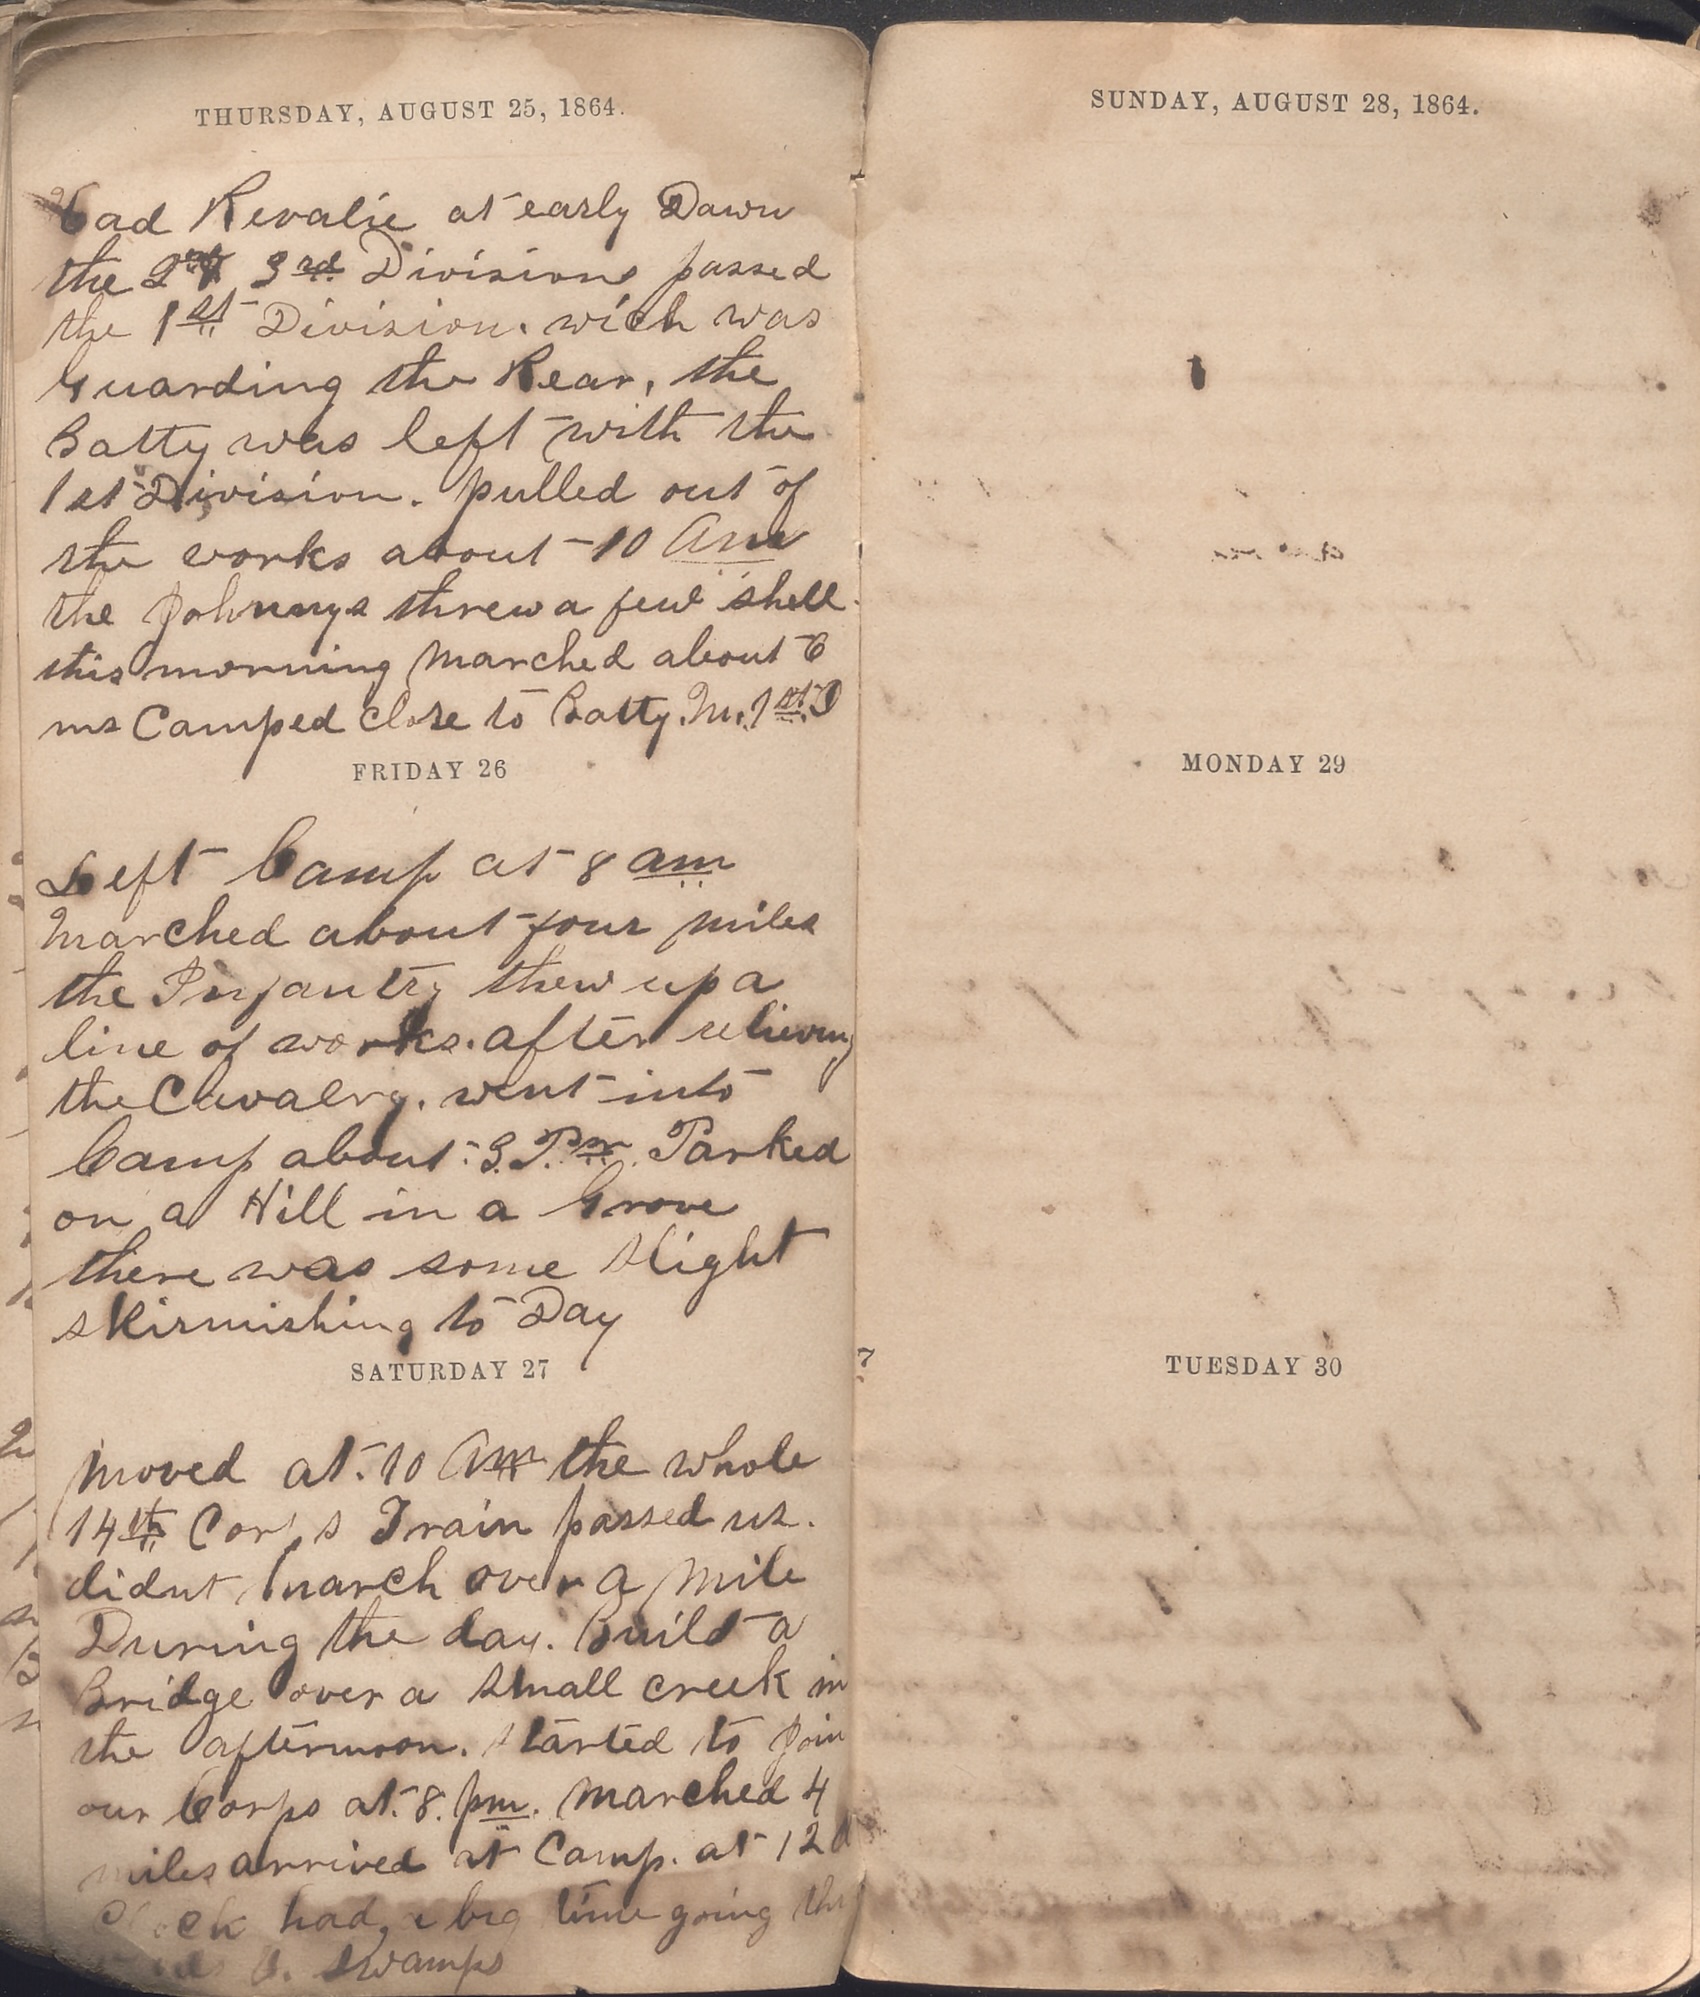 THURSDAY, AUGUST 25, 1864.
Had Revalie at early Dawn
the 2nd 3rd Divisions passed
the 1st Division. wich was
Guarding the Rear, the
Batty was left with the
1st Division. pulled out of
the works about 10 Am
the Johnnys threw a few shell
this morning marched about 6
ms Camped close to Batty. M. 1st
FRIDAY 26
Left Camp at 8 am
Marched about four miles
the Infantry thew up a
line of works. after relieving
the Cavalry. went into
Camp about 3. P.m. Parked
on a Hill in a Grove
there was some slight
skirmishing to Day
SATURDAY 27
Moved at 10 Am the whole
14th Corps Train passed us.
didnt march over a mile
During the day. Build a
Bridge over a small creek in
the afternoon. started to join
our Corps at 8. pm. marched 4
miles arrived at Camp. at 12 O
Clock had a big time going thr
swamps
SUNDAY, AUGUST 28, 1864.
MONDAY 29
7
TUESDAY 30